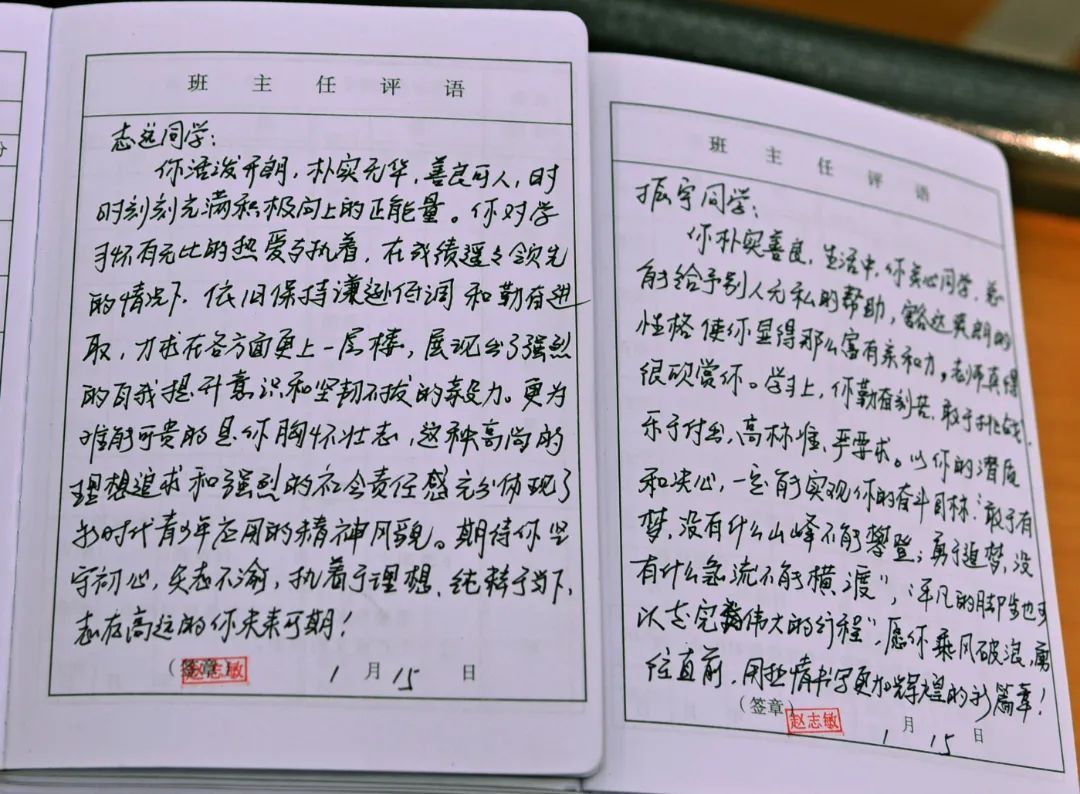 班主任评语
志远同学：
你活泼开朗，朴实无华，善良可人，时
时刻刻充满积极向上的正能量。你对学
习怀有无比的热爱与执着，在成绩遥遥领先
的情况下，依旧保持谦逊低调和勤奋进
取，力求在各方面更上一层楼，展现出了强烈
的自我提升意识和坚韧不拔的毅力。更为
难能可贵的是你胸怀壮志，这种高尚的
理想追求和强烈的社会责任感充分体现了
新时代青少年应用的精神风貌。期待你坚
守初心，矢志不渝，执着于理想，纯粹于当下，
志存高远的你未来可期！
（签章）
赵志敏
1月15日
班主任评语
振宇同学：
你朴实善良，生活中，你关心同学，总
能给予别人无私的帮助，豁达爽朗的
性格使你显得那么富有亲和力，老师真得
很欣赏你。学习上，你勤奋刻苦，敢于挑战，
乐于付出，高标准、严要求。以你的潜质
和决心，一定能实现你的奋斗目标：敢于有
梦，没有什么山峰不能攀登；勇于追梦，没
有什么急流不能横渡”，“平凡的脚步也可
以走完伟大的行程”，愿你乘风破浪，勇
往直前，用热情书写更加辉煌的新篇章！
（签章）
赵志敏
1月15日